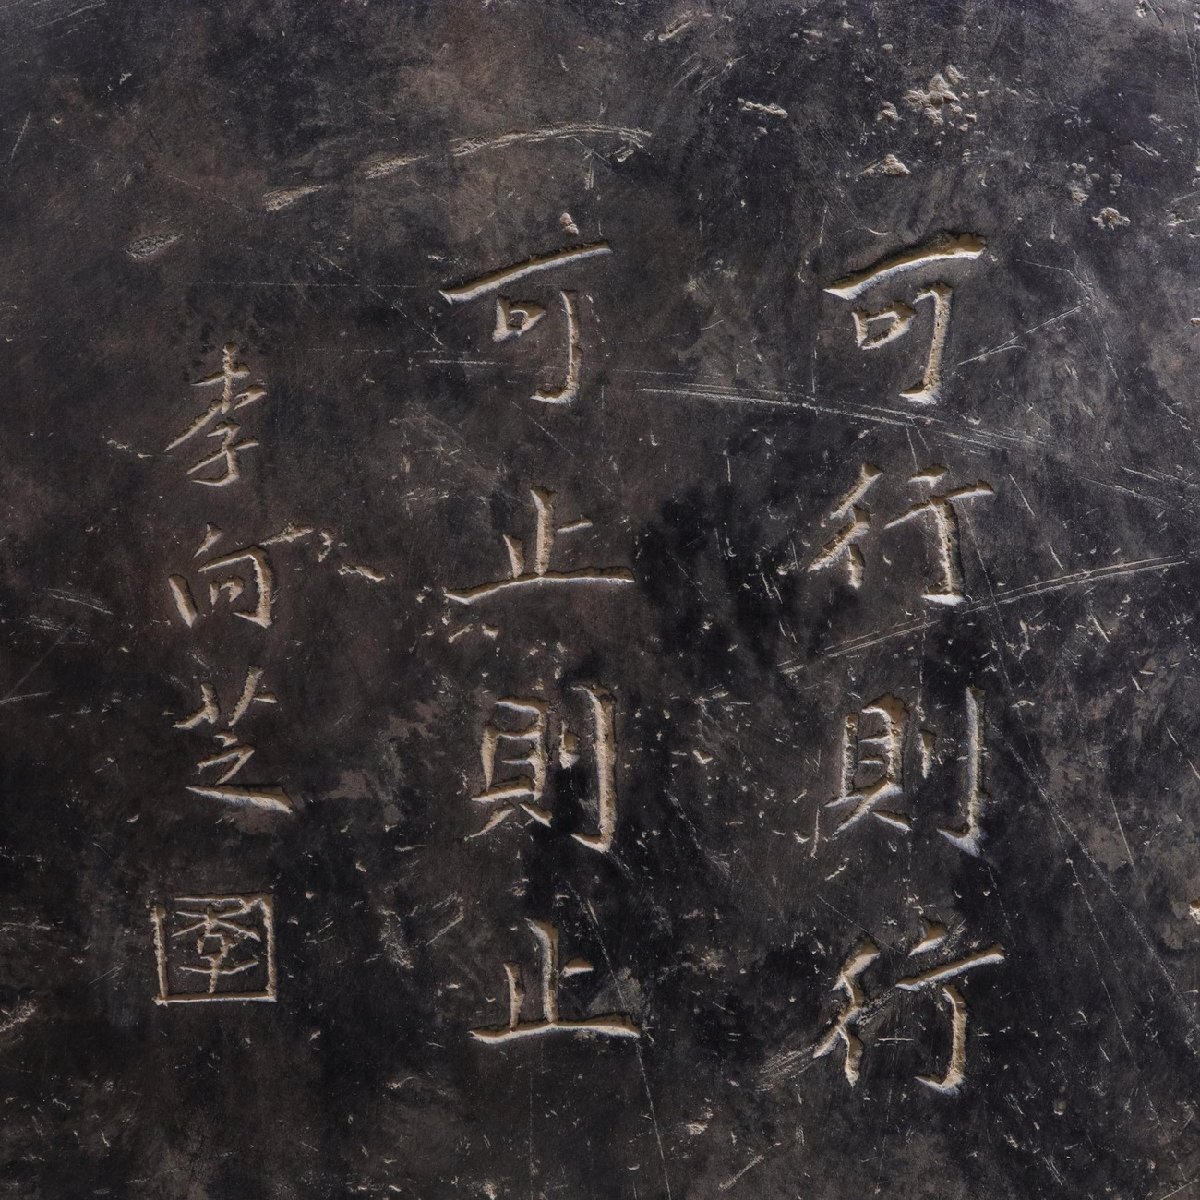 可行則行
可止則止
李向芝
李